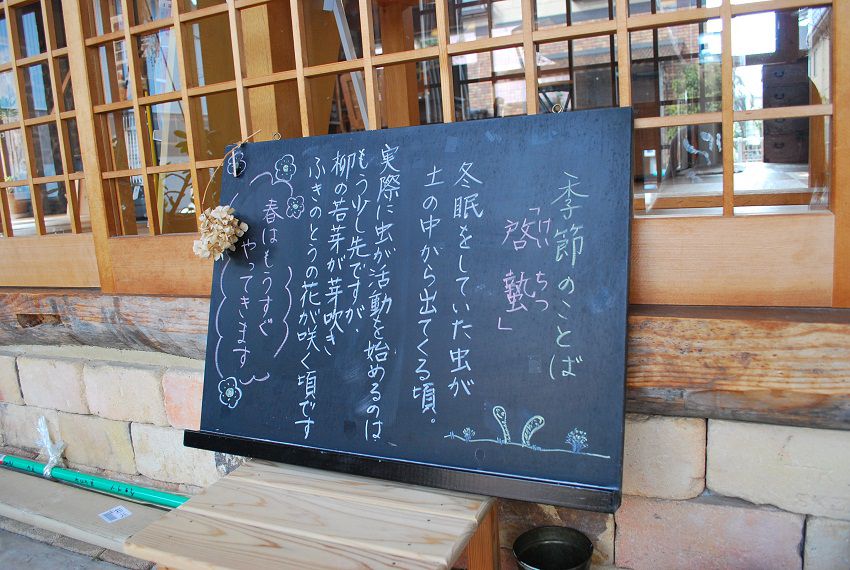 季節のことば
「啓蟄」
けい ちつ
冬眠をしていた虫が
土の中から出てくる頃。
実際に虫が活動を始めるのは
もう少し先ですが、
柳の若芽が芽吹き、
ふきのとうの花が咲く頃です
春はもうすぐ
やってきます